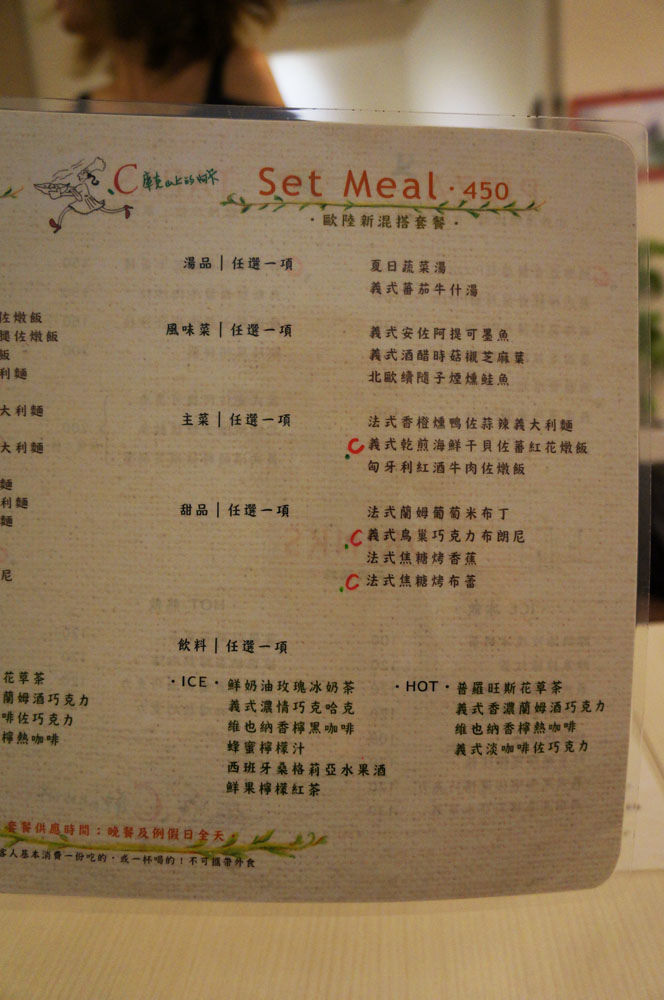 C 摩克山上的咖啡
Set Meal · 450
· 歐陸新混搭套餐 ·
湯品 | 任選一項
夏日蔬菜湯
義式蕃茄牛什湯
風味菜 | 任選一項
義式安佐阿提可墨魚
義式酒醋時菇襯芝麻葉
北歐續隨子煙燻鮭魚
主菜 | 任選一項
法式香橙燻鴨佐蒜辣義大利麵
C 義式乾煎海鮮干貝佐蕃紅花燉飯
匈牙利紅酒牛肉佐燉飯
甜品 | 任選一項
法式蘭姆葡萄米布丁
C 義式鳥巢巧克力布朗尼
法式焦糖烤香蕉
C 法式焦糖烤布蕾
飲料 | 任選一項
· ICE ·
鮮奶油玫瑰冰奶茶
義式濃情巧克哈克
維也納香檸黑咖啡
蜂蜜檸檬汁
西班牙桑格莉亞水果酒
鮮果檸檬紅茶
· HOT ·
普羅旺斯花草茶
義式香濃蘭姆酒巧克力
維也納香檸熱咖啡
義式淡咖啡佐巧克力
佐燉飯
腿佐燉飯
飯
利麵
大利麵
大利麵
麵
利麵
麵
尼
花草茶
蘭姆酒巧克力
啡佐巧克力
檸熱咖啡
套餐供應時間：晚餐及例假日全天
客人基本消費一份吃的，或一杯喝的！不可攜帶外食